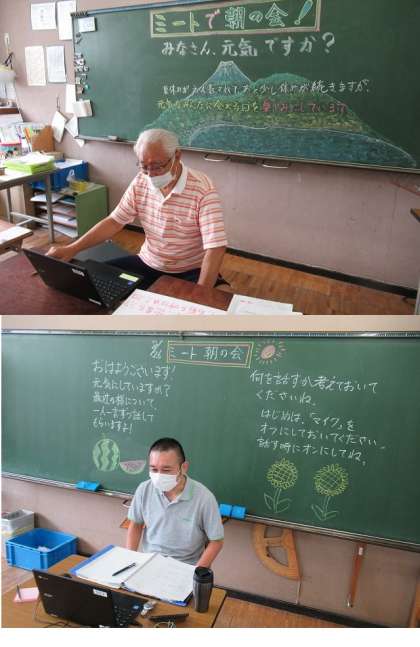 ミートで朝の会!
みなさん、元気ですか?
夏休みが
元気なみんなに会える日を楽しみにしています
8/26
ミート朝の会
おはようございます!
元気にしていますか?
最近の様子について、
一人一言ずつ話して
もらいますよ!
何を話すか考えておいて
くださいね。
はじめは、「マイク」を
オフにしておいてください。
話す時にオンにしてね。